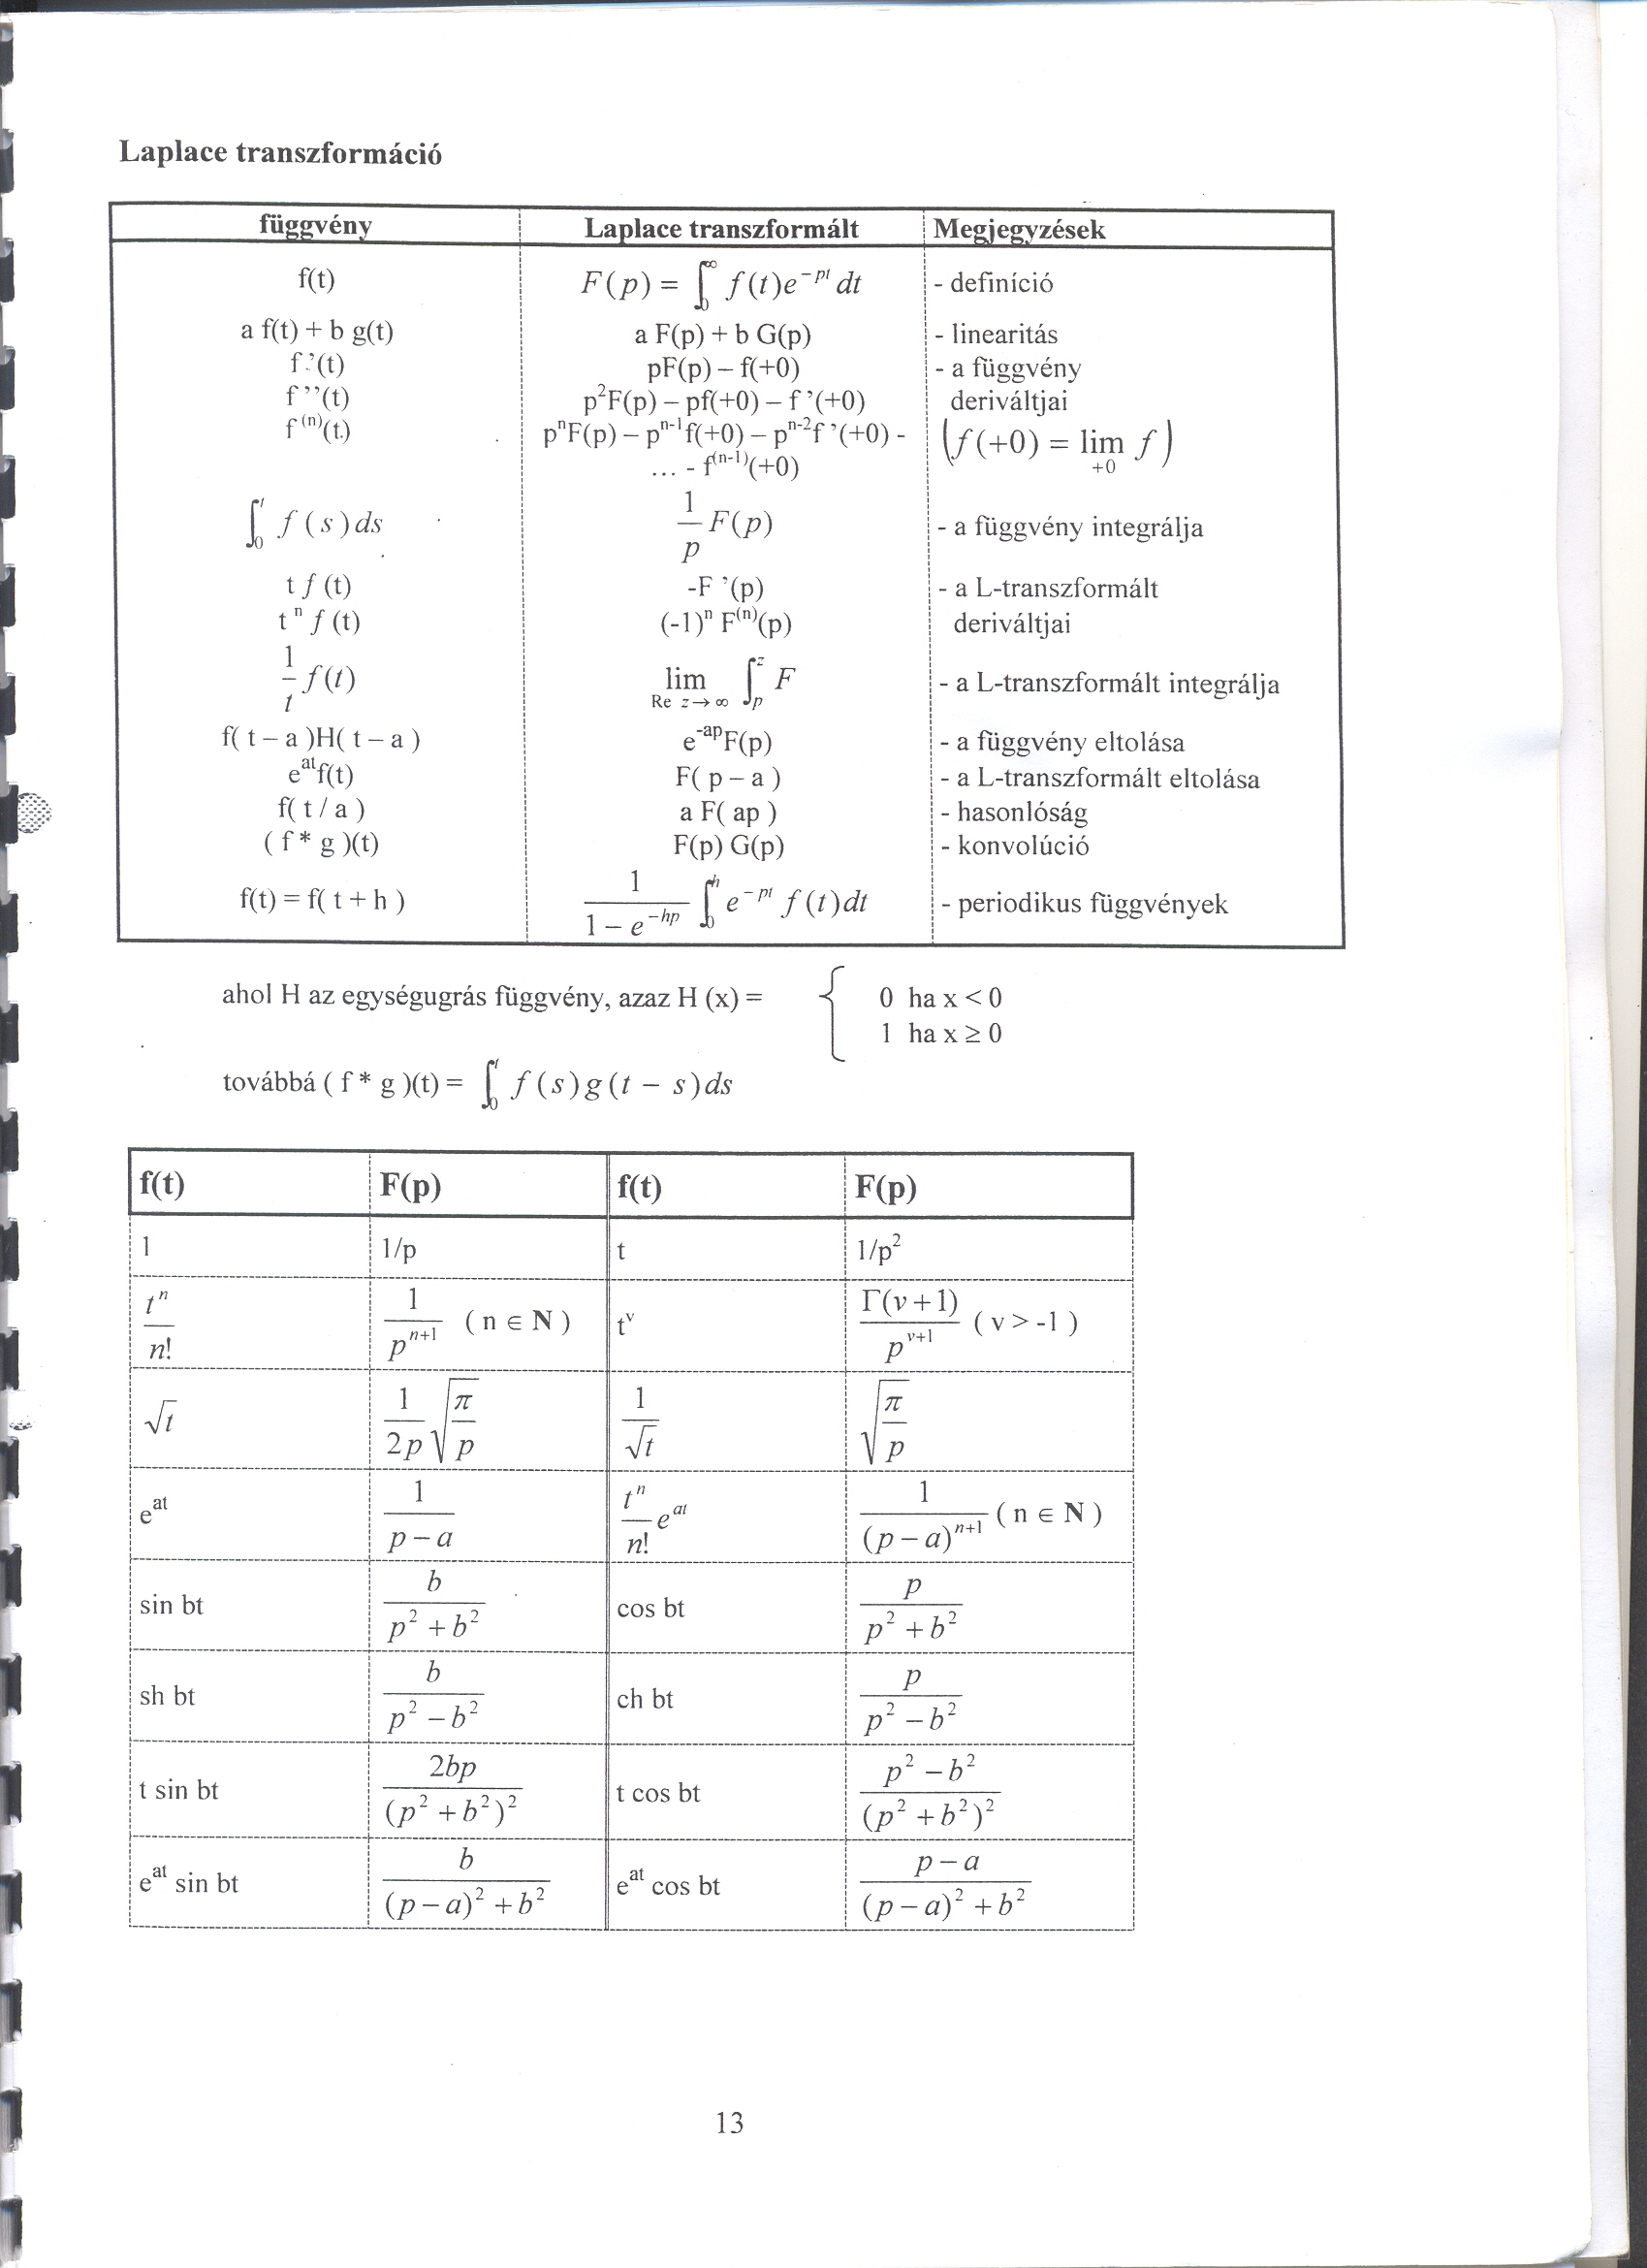 Laplace transzformáció
függvény Laplace transzformált Megjegyzések
f(t) F(p) = ∫₀^∞ f(t)e^{-pt} dt - definíció
a f(t) + b g(t) a F(p) + b G(p) - linearitás
f ’(t) pF(p) – f(+0) - a függvény
f ’’(t) p²F(p) – pf(+0) – f ’(+0) deriváltjai
f^{(n)}(t) pⁿF(p) – p^{n-1}f(+0) – p^{n-2}f ’(+0) - (f(+0) = lim_{+0} f)
... - f^{(n-1)}(+0)
∫₀^t f(s)ds 1/p F(p) - a függvény integrálja
t f (t) -F ’(p) - a L-transzformált
tⁿ f (t) (-1)ⁿ F^{(n)}(p) deriváltjai
1/t f(t) lim_{Re z→∞} ∫_p^z F - a L-transzformált integrálja
f( t – a )H( t – a ) e^{-ap}F(p) - a függvény eltolása
e^{at}f(t) F( p – a ) - a L-transzformált eltolása
f( t / a ) a F( ap ) - hasonlóság
( f * g )(t) F(p) G(p) - konvolúció
f(t) = f( t + h ) 1/(1 – e^{-hp}) ∫₀^h e^{-pt} f(t)dt - periodikus függvények
ahol H az egységugrás függvény, azaz H (x) = { 0 ha x < 0
1 ha x ≥ 0
továbbá ( f * g )(t) = ∫₀^t f(s)g(t – s)ds
f(t) F(p) f(t) F(p)
1 1/p t 1/p²
tⁿ/n! 1/p^{n+1} ( n ∈ N ) t^v Γ(v+1)/p^{v+1} ( v > -1 )
√t 1/2p √(π/p) 1/√t √(π/p)
e^{at} 1/(p – a) tⁿ/n! e^{at} 1/(p – a)^{n+1} ( n ∈ N )
sin bt b/(p² + b²) cos bt p/(p² + b²)
sh bt b/(p² – b²) ch bt p/(p² – b²)
t sin bt 2bp/(p² + b²)² t cos bt (p² – b²)/(p² + b²)²
e^{at} sin bt b/((p – a)² + b²) e^{at} cos bt (p – a)/((p – a)² + b²)
13